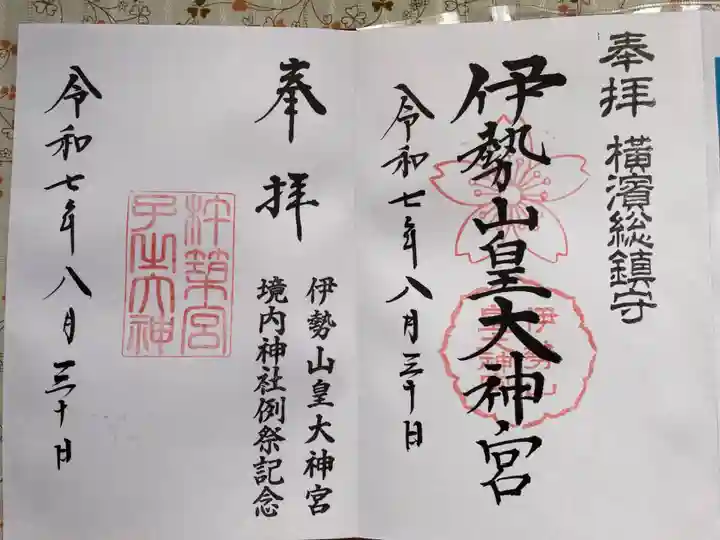 奉拝 横濱総鎮守
伊勢山皇大神宮
令和七年八月三十日
伊勢山
皇大神宮
奉拝
伊勢山皇大神宮
境内神社例祭記念
杵築宮
子之大神
令和七年八月三十日